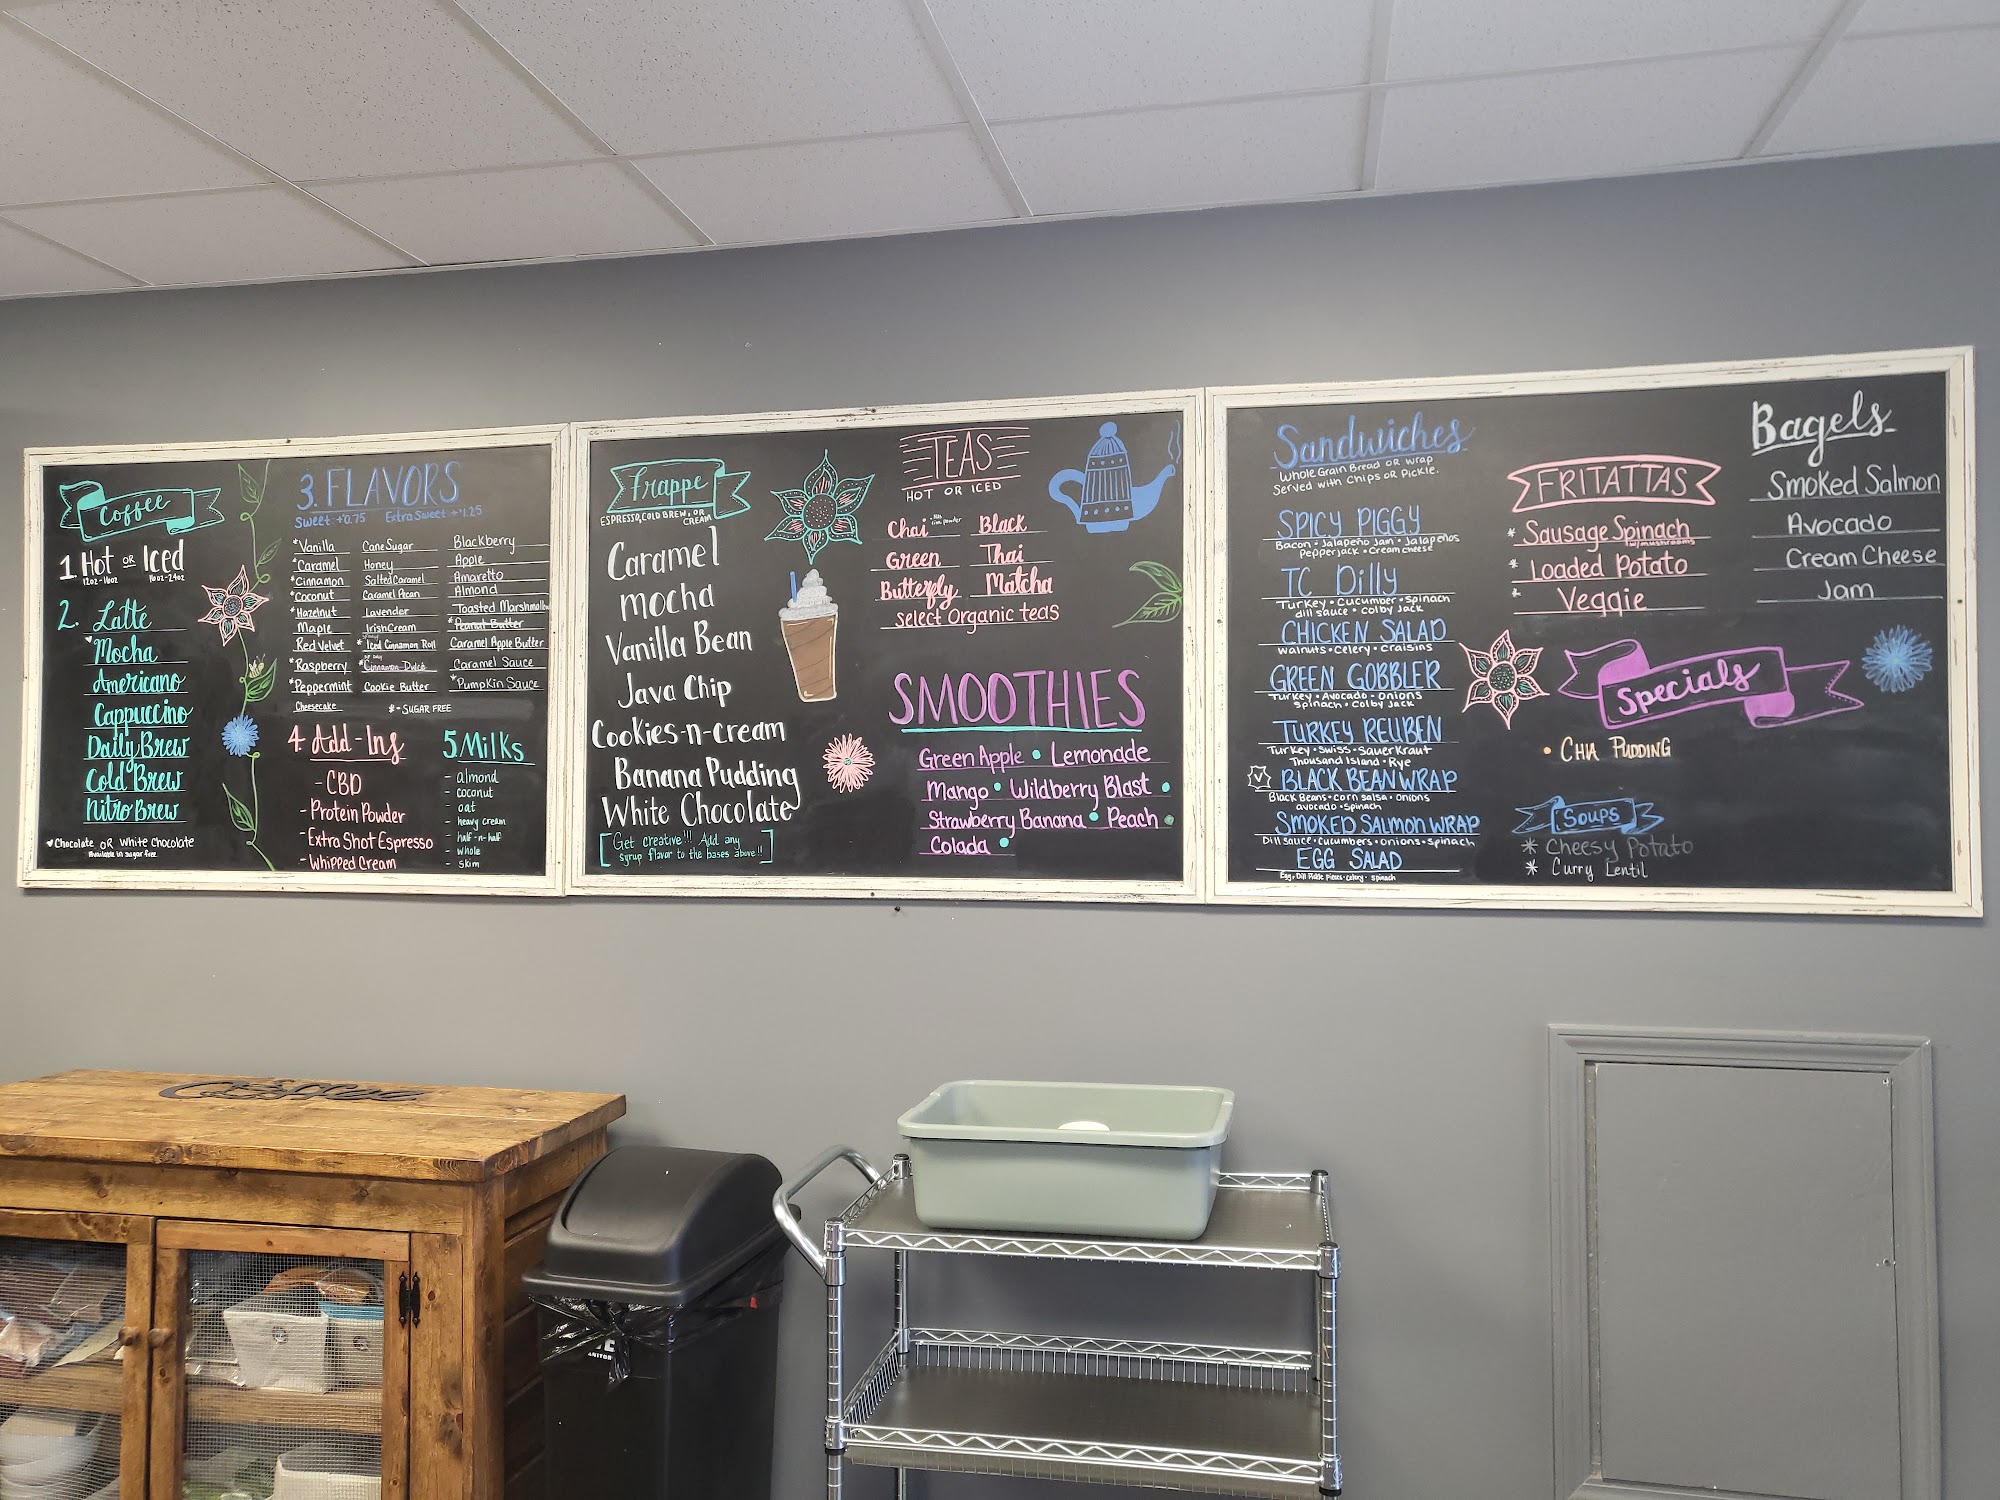 Coffee
1. Hot OR Iced
12oz-16oz 16oz-24oz
2. Latte
Mocha
Americano
Cappuccino
Daily Brew
Cold Brew
Nitro Brew
♥Chocolate OR White Chocolate
Available in sugar free
3. FLAVORS
Sweet +0.75 Extra Sweet +1.25
*Vanilla
*Caramel
*Cinnamon
*Coconut
*Hazelnut
Maple
Red Velvet
*Raspberry
*Peppermint
Cheesecake
Cane Sugar
Honey
Salted Caramel
Caramel Pecan
Lavender
Irish Cream
*Iced Cinnamon Roll
*Cinnamon Dulce
Cookie Butter
* - SUGAR FREE
Blackberry
Apple
Amaretto
Almond
Toasted Marshmallow
*Peanut Butter
Caramel Apple Butter
Caramel Sauce
*Pumpkin Sauce
4. Add-Ins
- CBD
- Protein Powder
- Extra Shot Espresso
- Whipped Cream
5. Milks
- almond
- coconut
- oat
- heavy cream
- half-n-half
- whole
- skim
Frappe
ESPRESSO, COLD BREW, OR
CREAM
Caramel
mocha
Vanilla Bean
Java Chip
Cookies-n-cream
Banana Pudding
White Chocolate
[Get creative!!! Add any
syrup flavor to the bases above!!]
TEAS
HOT OR ICED
Chai Black
Green Thai
Butterfly Matcha
Select Organic teas
SMOOTHIES
Green Apple • Lemonade
Mango • Wildberry Blast •
Strawberry Banana • Peach •
Colada •
Sandwiches
Whole Grain Bread OR Wrap
Served with Chips OR Pickle.
SPICY PIGGY
Bacon • Jalapeño Jam • Jalapeños
Pepperjack • Creamcheese
TC Dilly
Turkey • Cucumber • Spinach
dill sauce • Colby Jack
CHICKEN SALAD
Walnuts • Celery • Craisins
GREEN GOBBLER
Turkey • Avocado • Onions
Spinach • Colby Jack
TURKEY REUBEN
Turkey • Swiss • Sauerkraut
Thousand Island • Rye
V BLACK BEAN WRAP
Black Beans • corn salsa • onions
avocado • spinach
SMOKED SALMON WRAP
Dill sauce • Cucumbers • Onions • Spinach
EGG SALAD
Egg, Dill Pickle Pieces • Celery • Spinach
FRITATTAS
* Sausage Spinach
w/mushrooms
* Loaded Potato
* Veggie
Specials
• CHIA PUDDING
SOUPS
* Cheesy Potato
* Curry Lentil
Bagels
Smoked Salmon
Avocado
Cream Cheese
Jam
Coffee